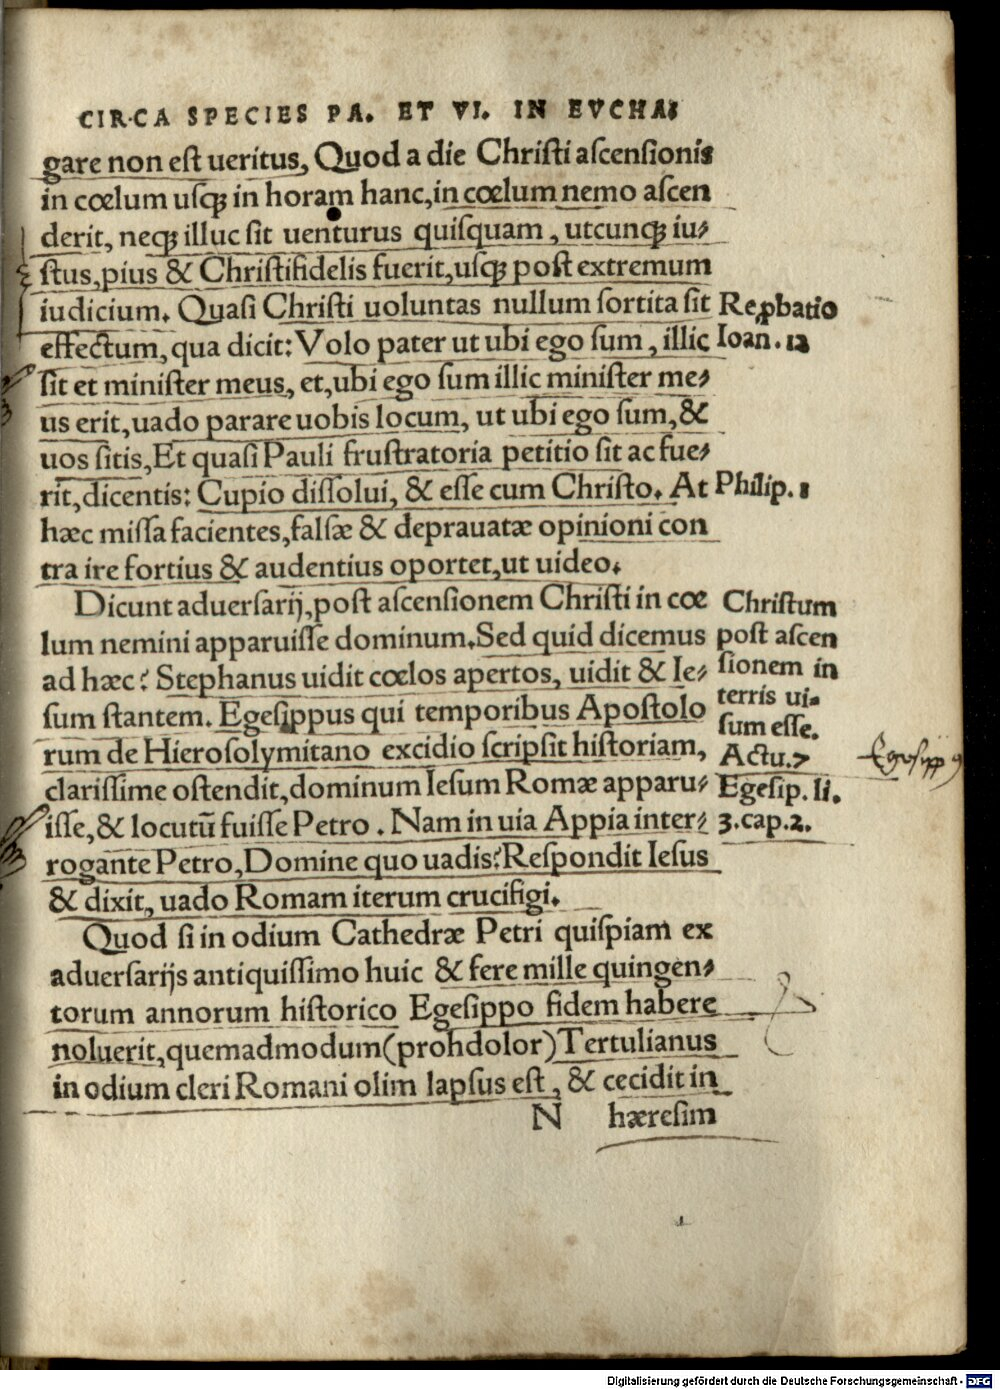 CIRCA SPECIES PA. ET VI. IN EVCHA⸗
gare non eſt ueritus, Quod a die Chriſti aſcenſionis
in cœlum uſqꝫ in horam hanc,in cœlum nemo aſcen
derit, neqꝫ illuc ſit uenturus quiſquam, utcunqꝫ iu⸗
ſtus,pius & Chriſtifidelis fuerit,uſqꝫ poſt extremum
iudicium. Quaſi Chriſti uoluntas nullum ſortita ſit
Reꝓbatio
effectum,qua dicit: Volo pater ut ubi ego ſum, illic
Ioan. 12
ſit et miniſter meus, et,ubi ego ſum illic miniſter me⸗
us erit,uado parare uobis locum, ut ubi ego ſum,&
uos ſitis,Et quaſi Pauli fruſtratoria petitio ſit ac fue⸗
rit,dicentis: Cupio diſſolui, & eſſe cum Chriſto. At
Philip. 1
hæc miſſa facientes,falſæ & deprauatæ opinioni con
tra ire fortius & audentius oportet,ut uideo.
Dicunt aduerſarij,poſt aſcenſionem Chriſti in cœ
Chriſtum
lum nemini apparuiſſe dominum.Sed quid dicemus
poſt aſcen
ad hæc? Stephanus uidit cœlos apertos, uidit & Ie⸗
ſionem in
ſum ſtantem. Egeſippus qui temporibus Apoſtolo
terris ui⸗
ſum eſſe.
rum de Hieroſolymitano excidio ſcripſit hiſtoriam,
Actu.7
Egesippꝰ
clariſſime oſtendit,dominum Ieſum Romæ apparu⸗
Egeſip. li.
iſſe,& locutū fuiſſe Petro. Nam in uia Appia inter⸗
3.cap.2.
rogante Petro,Domine quo uadis? Reſpondit Ieſus
& dixit, uado Romam iterum crucifigi.
Quod ſi in odium Cathedræ Petri quiſpiam ex
aduerſarijs antiquiſſimo huic & fere mille quingen⸗
torum annorum hiſtorico Egeſippo fidem habere
noluerit,quemadmodum(prohdolor)Tertulianus
in odium cleri Romani olim lapſus eſt, & cecidit in
N hæreſim
Digitalisierung gefördert durch die Deutsche Forschungsgemeinschaft - DFG